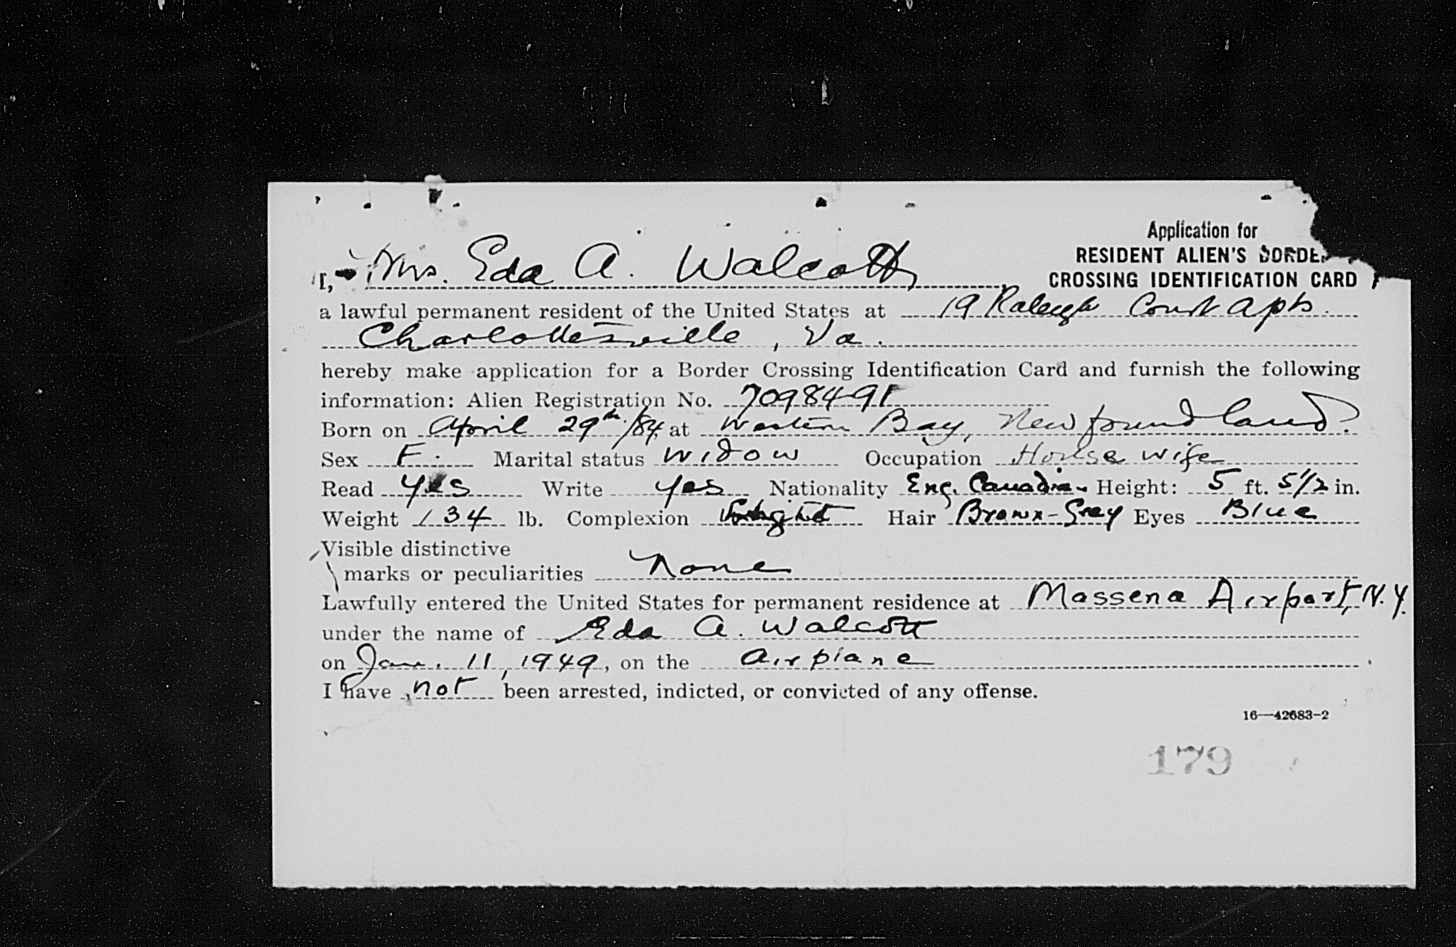 Application for
RESIDENT ALIEN'S BORDE
CROSSING IDENTIFICATION CARD
I, Mrs. Eda A. Walcott
a lawful permanent resident of the United States at 19 Raleigh Court Apts.
Charlottesville, Va.
hereby make application for a Border Crossing Identification Card and furnish the following
information: Alien Registration No. 7098491
Born on April 29th/84 at Western Bay, Newfoundland.
Sex F. Marital status Widow Occupation House wife
Read yes Write yes Nationality Eng. Canadian Height: 5 ft. 5 1/2 in.
Weight 134 lb. Complexion Hair Brown-Grey Eyes Blue
Visible distinctive
marks or peculiarities None
Lawfully entered the United States for permanent residence at Massena Airport, N.Y.
under the name of Eda A. Walcott
on Jan. 11, 1949, on the Airplane
I have not been arrested, indicted, or convicted of any offense.
16—42683-2
179